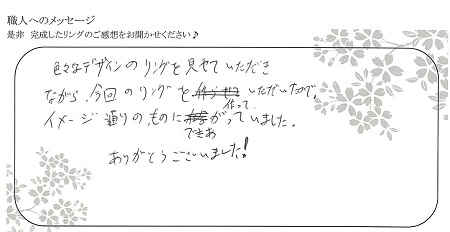 職人へのメッセージ
是非 完成したリングのご感想をお聞かせください♪
色々なデザインのリングを見せていただき
ながら、今回のリングを作っていただいたので、
イメージ通りのものにできあがっていました。
ありがとうございました!